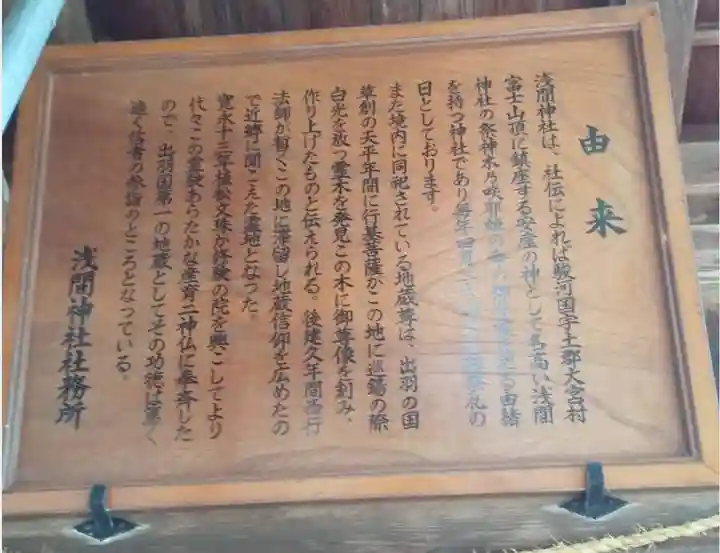 由来
浅間神社は、社伝によれば駿河国字土郡大宮村
富士山頂に鎮座する安産の神として名高い浅間
神社の祭神木乃咲耶姫の
る由緒
を持つ神社であり毎年四月
祭礼の
日としております。
また境内に同祀されている地蔵尊は、出羽の国
草創の天平年間に行基菩薩がこの地に巡錫の際
白光を放つ霊木を発見この木に御尊像を刻み、
作り上げたものと伝えられる。後建久年間西行
法師が暫くこの地に滞留し地蔵信仰を広めたの
で近郷に聞こえた霊地となった。
寛永十三年
文珠が修験の院を興こしてより
代々この霊験あらたかな産育二神仏に奉斉した
ので、出羽国第一の地蔵としてその功徳は軍く
遠く信者の参詣のところとなっている。
浅間神社社務所